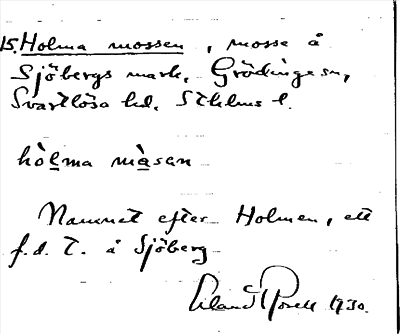 15. Holma mossen, mosse å
Sjöbergs mark, Grödinge sn,
Svartlösa hd. Sthlms l.
hòlma màsan
Namnet efter Holmen, ett
f.d. T. å Sjöberg
Erland Rosell 1930.